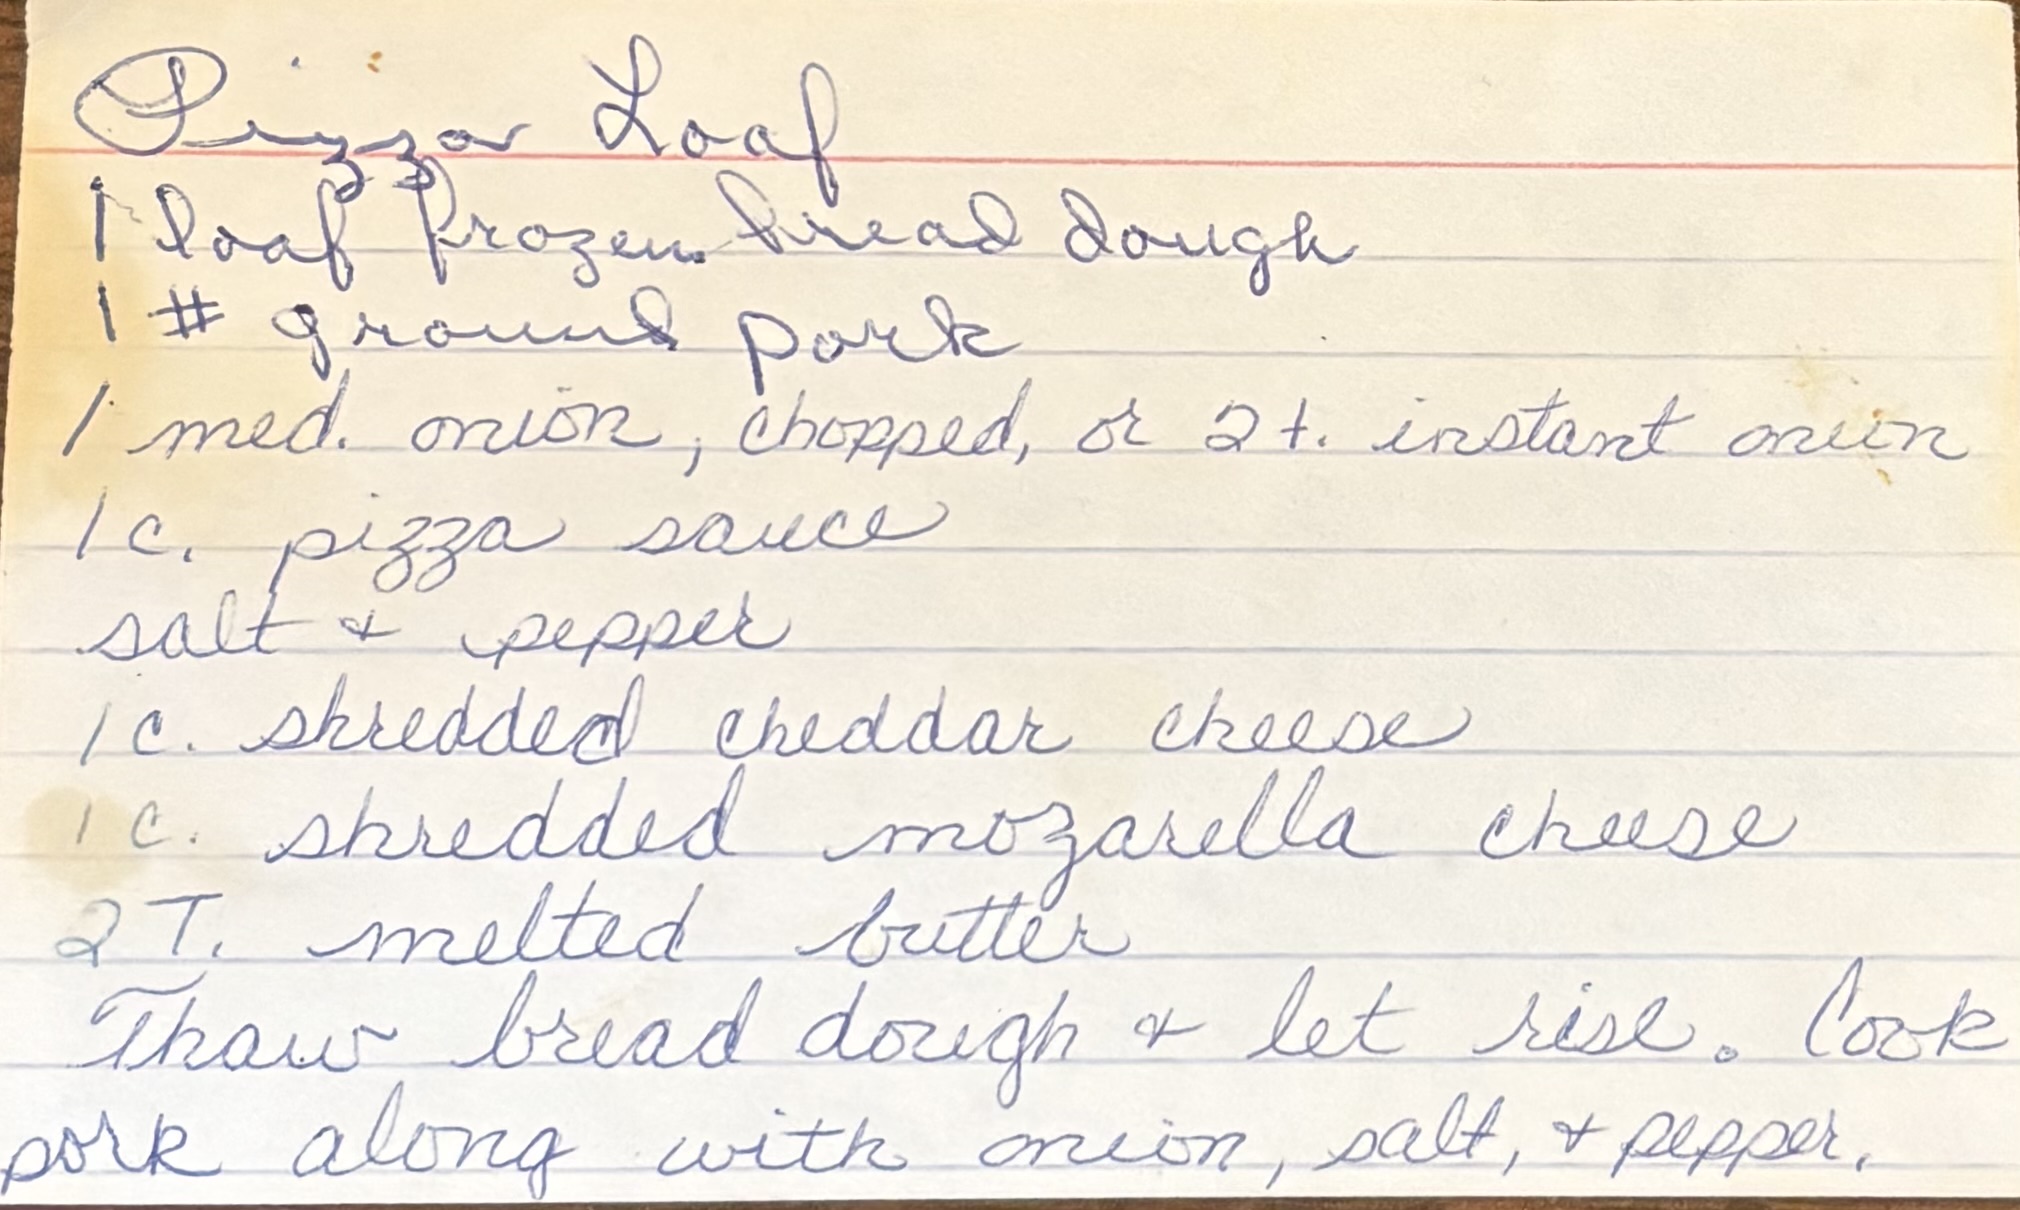 Pizza Loaf
1 loaf frozen bread dough
1 # ground pork
1 med. onion, chopped, or 2 t. instant onion
1 c. pizza sauce
salt & pepper
1 c. shredded cheddar cheese
1 c. shredded mozarella cheese
2 T. melted butter
Thaw bread dough & let rise. Cook
pork along with onion, salt, & pepper.